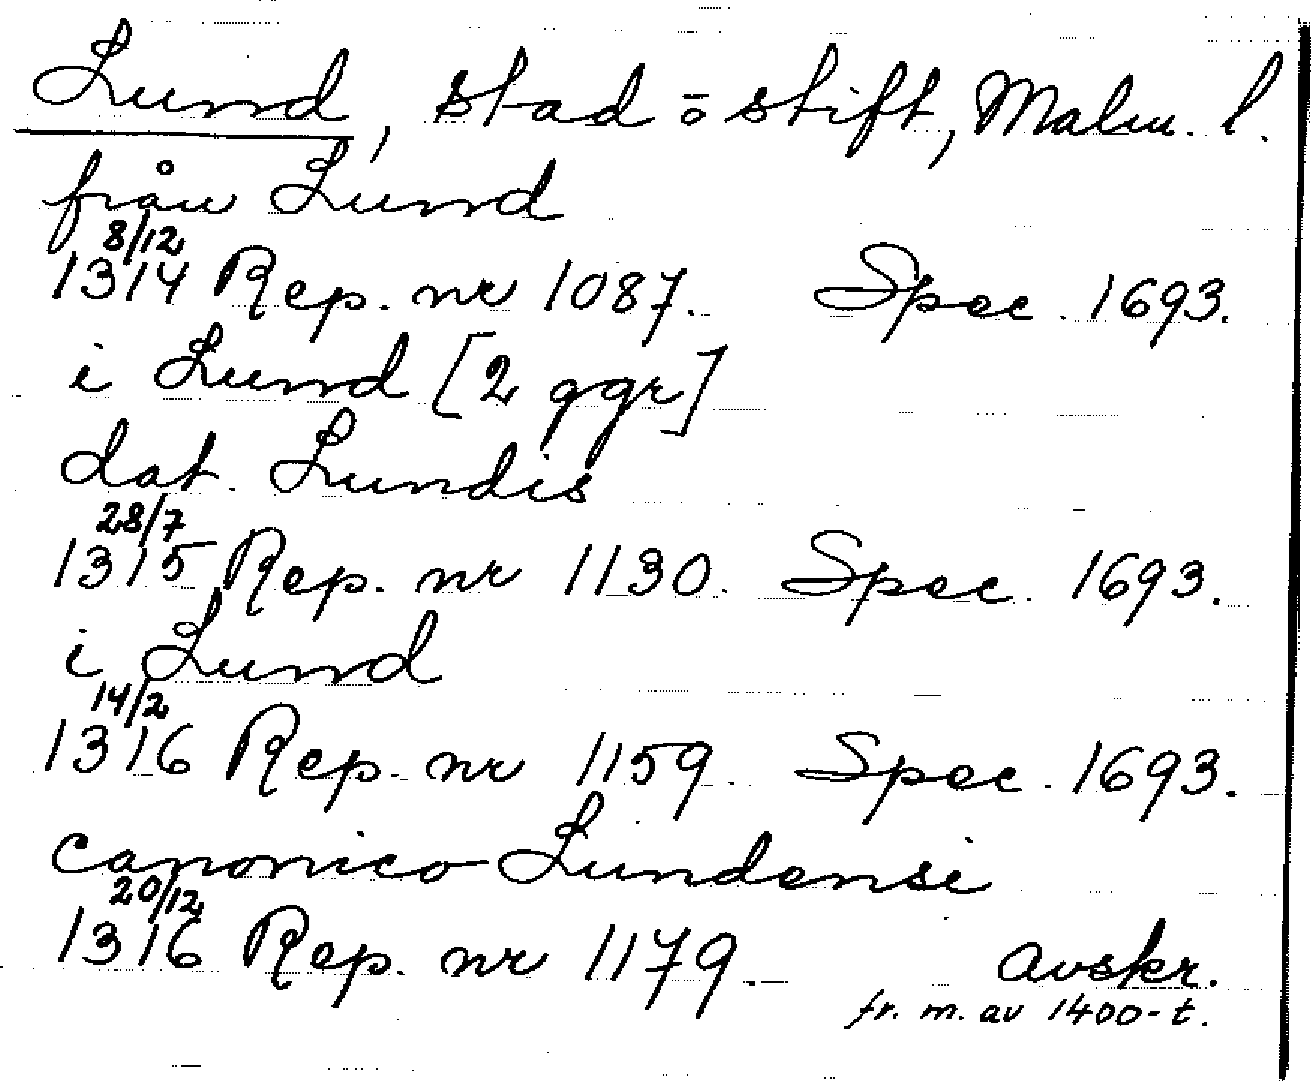 Lund, stad o stift, Malm. l.
från Lund
8/12
1314 Rep. nr 1087. Spec. 1693.
i Lund [2 ggr]
dat. Lundis
28/7
1315 Rep. nr 1130. Spec. 1693.
i Lund
14/2
1316 Rep. nr 1159. Spec. 1693.
canonico Lundensi
20/12
1316 Rep. nr 1179. avskr.
fr. m. av 1400-t.